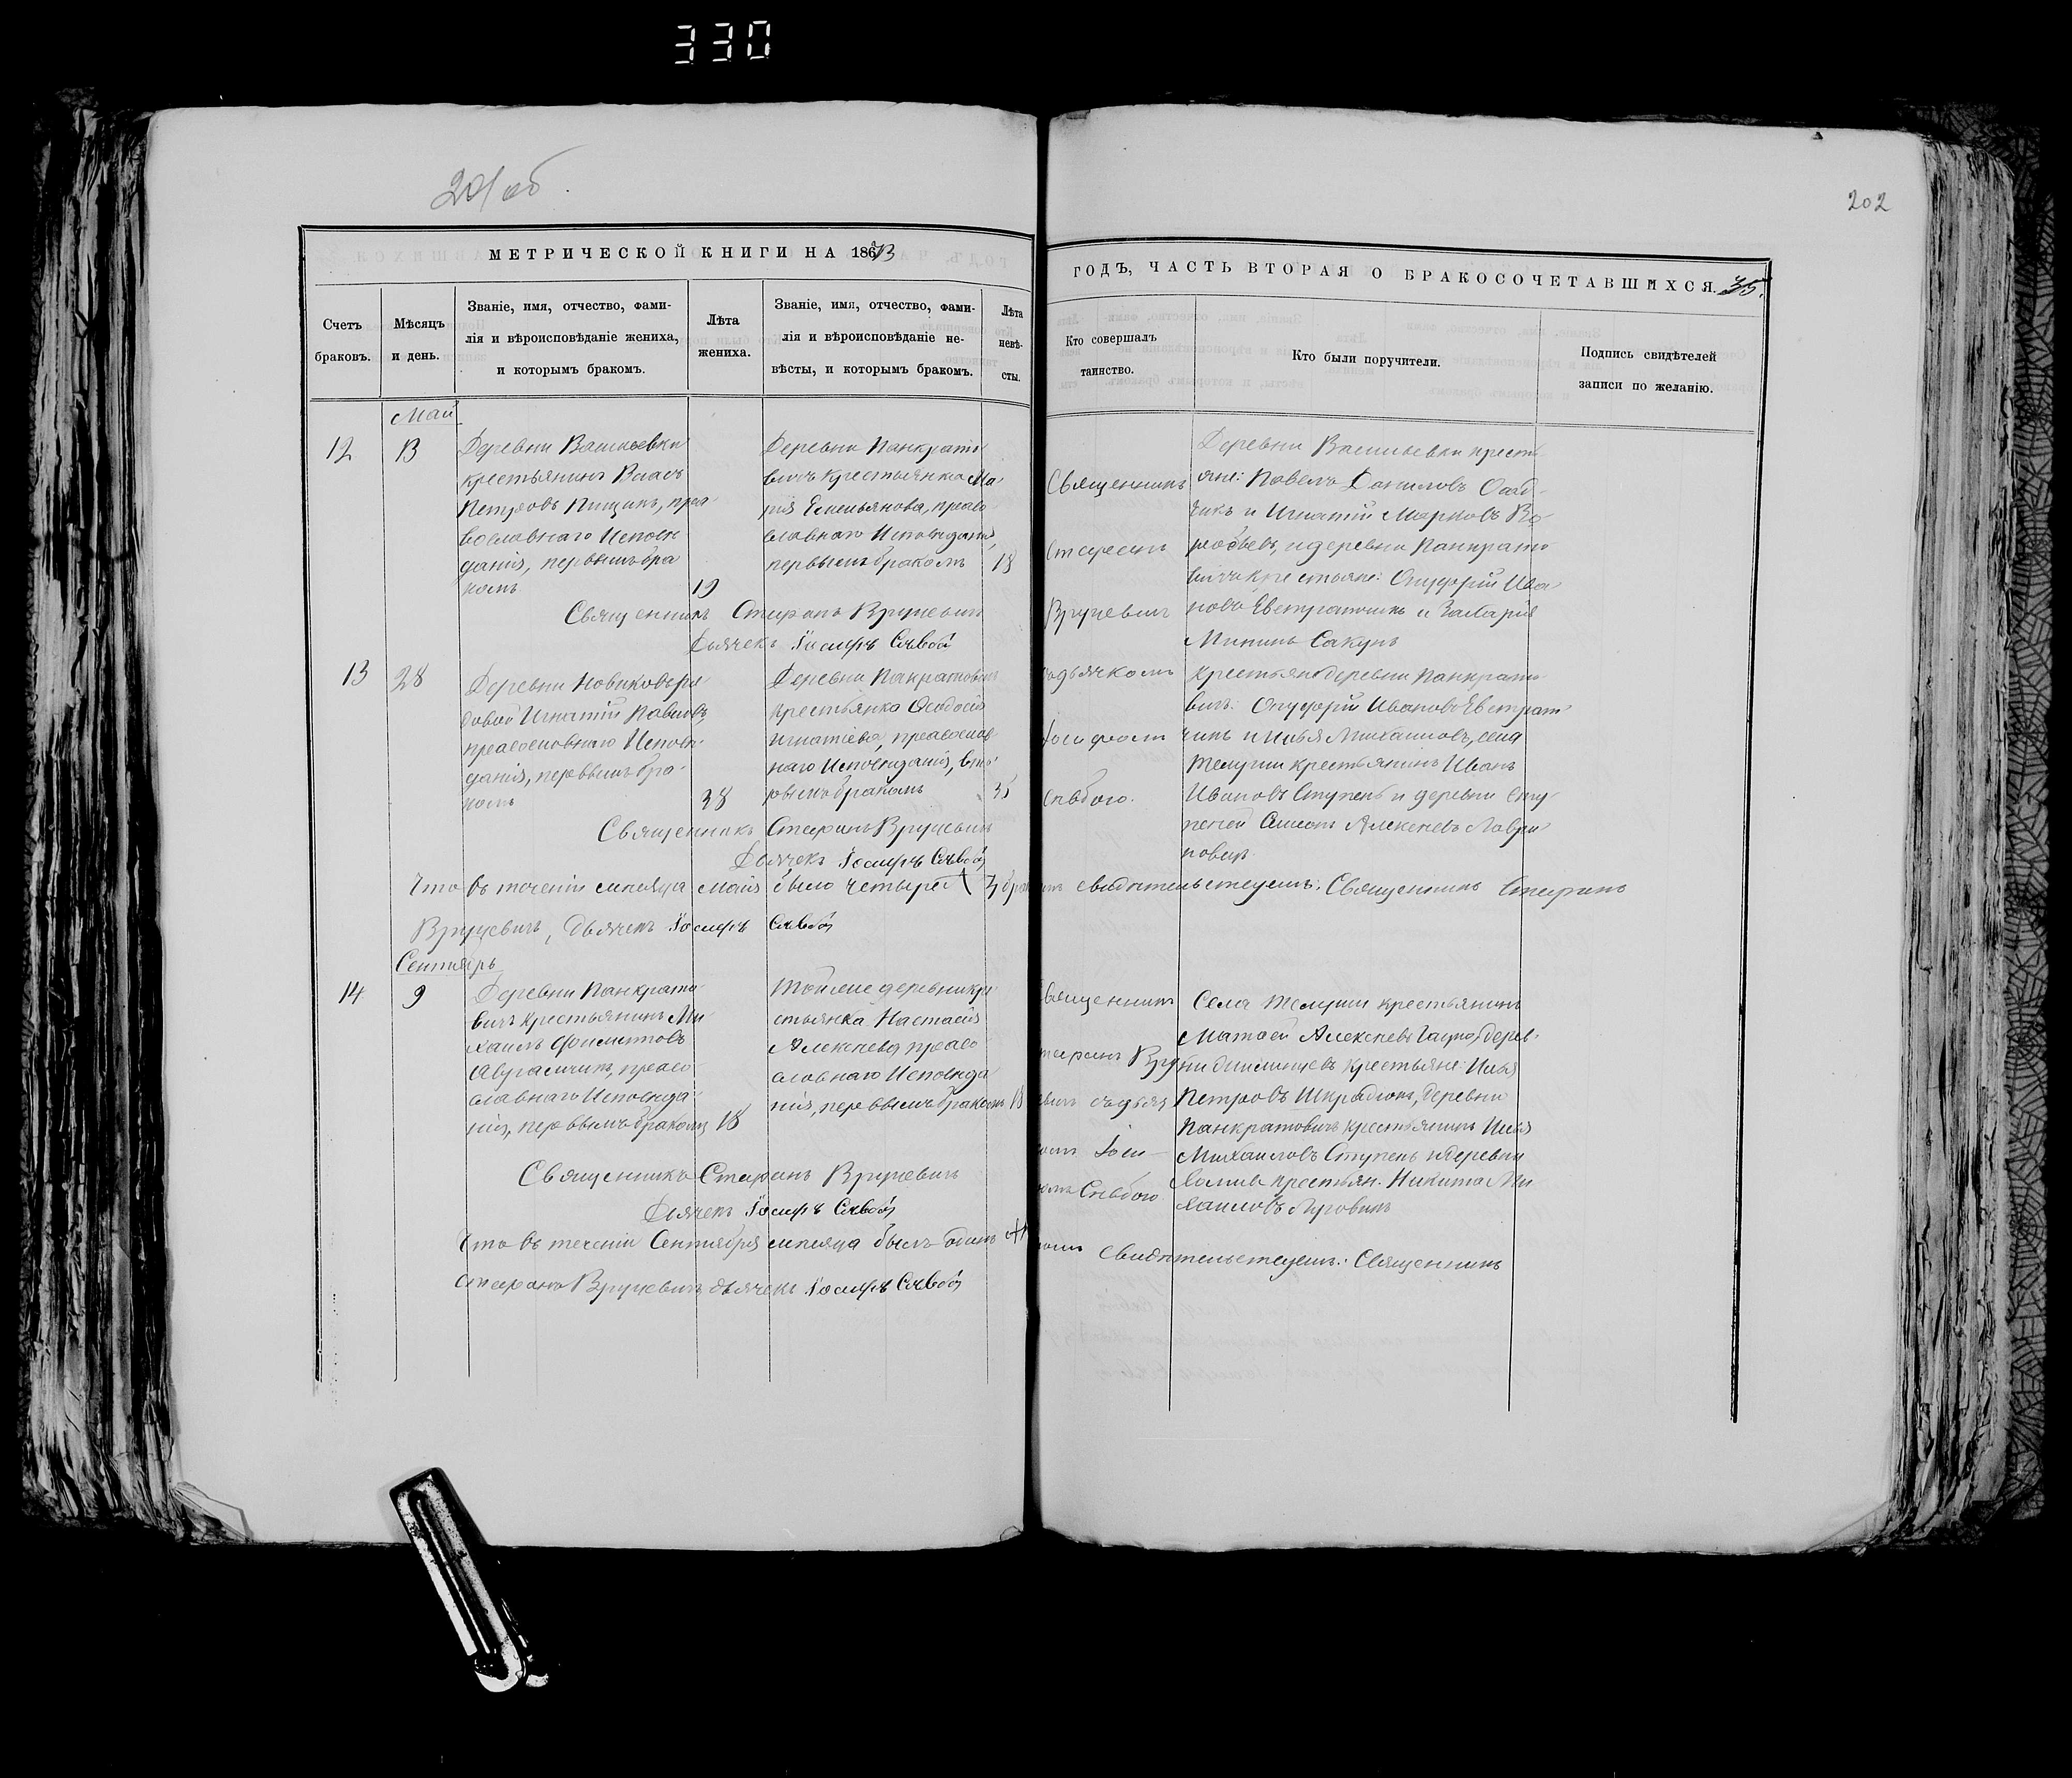 330
201 об.
202
МЕТРИЧЕСКОЙ КНИГИ НА 1873
ГОДЪ, ЧАСТЬ ВТОРАЯ О БРАКОСОЧЕТАВШИХСЯ. 35.
Счетъ браковъ.
Мѣсяцъ и день.
Званіе, имя, отчество, фами-
лія и вѣроисповѣданіе жениха,
и которымъ бракомъ.
Лѣта жениха.
Званіе, имя, отчество, фами-
лія и вѣроисповѣданіе не-
вѣсты, и которымъ бракомъ.
Лѣта невѣ-
сты.
Кто совершалъ
таинство.
Кто были поручители.
Подпись свидѣтелей
записи по желанію.
Май
12
13
Деревни Васильевки
крестьянинъ Власъ
Петровъ Пищикъ, пра-
вославнаго Исповѣ
данія, первымъ бра
комъ
19
Деревни Панкрато
вичъ крестьянка Ма-
рія Емельянова, право
славнаго Исповѣданія,
первымъ бракомъ
18
Священникъ
Стефанъ
Вруцевичъ
Деревни Васильевки кресть
яне: Павелъ Даниловъ
и Игнатій Марковъ Во-
робьевъ, и деревни Панкрато
вичъ крестьяне: Онуфрій Ива-
новъ Евтратчикъ и Захарія
Мининъ Сакунъ
Священникъ Стефанъ Вруцевичъ
Дьячекъ Іосифъ Слѣбой
13
28
Деревни Новиковъ ря-
довой Игнатій Павловъ,
православнаго Исповѣ-
данія, первымъ бра-
комъ
38
Деревни Панкратовичъ
крестьянка Ѳеодосія
Игнатіева, православ
наго Исповѣданія, вто-
рымъ бракомъ
35
съ дьячкомъ
Іосифомъ
Слѣбою.
Крестьяне деревни Панкрато-
вичъ: Онуфрій Ивановъ Евтрат-
чикъ и Илья Михаиловъ, села
Телуши крестьянинъ Иванъ
Ивановъ Ступень и деревни Сту-
пеней Симеонъ Алексѣевъ Лаври-
новичъ.
Священникъ Стефанъ Вруцевичъ
Дьячекъ Іосифъ Слѣбой
Что въ теченіи мѣсяца Майя было четыре 4 брака свидѣтельствуемъ: Священникъ Стефанъ
Вруцевичъ, Дьячекъ Іосифъ Слѣбой
Сентябрь
14
9
Деревни Панкрато-
вичъ крестьянинъ Ми-
хаилъ Филиповъ
Аврамчикъ, право-
славнаго Исповѣда-
нія, первымъ бракомъ
18
Той же деревни кре-
стьянка Настасія
Алексѣева право
славнаго Исповѣда
нія, первымъ бракомъ
18
Священникъ
Стефанъ Вру
цевичъ съ дьяч
комъ Іоси-
фомъ Слѣбою
Села Телуши крестьянинъ
Матѳей Алексѣевъ дерев-
ни крестьяне: Илья
Петровъ Шкрадюкъ, деревни
Панкратовичъ крестьянинъ Илья
Михаиловъ Ступень и деревни
крестьян. Никита Ми
хаиловъ Луговикъ
Священникъ Стефанъ Вруцевичъ
Дьячекъ Іосифъ Слѣбой
Что въ теченіи Сентября мѣсяца былъ одинъ свидѣтельствуемъ: Священникъ
Стефанъ Вруцевичъ дьячекъ Іосифъ Слѣбой